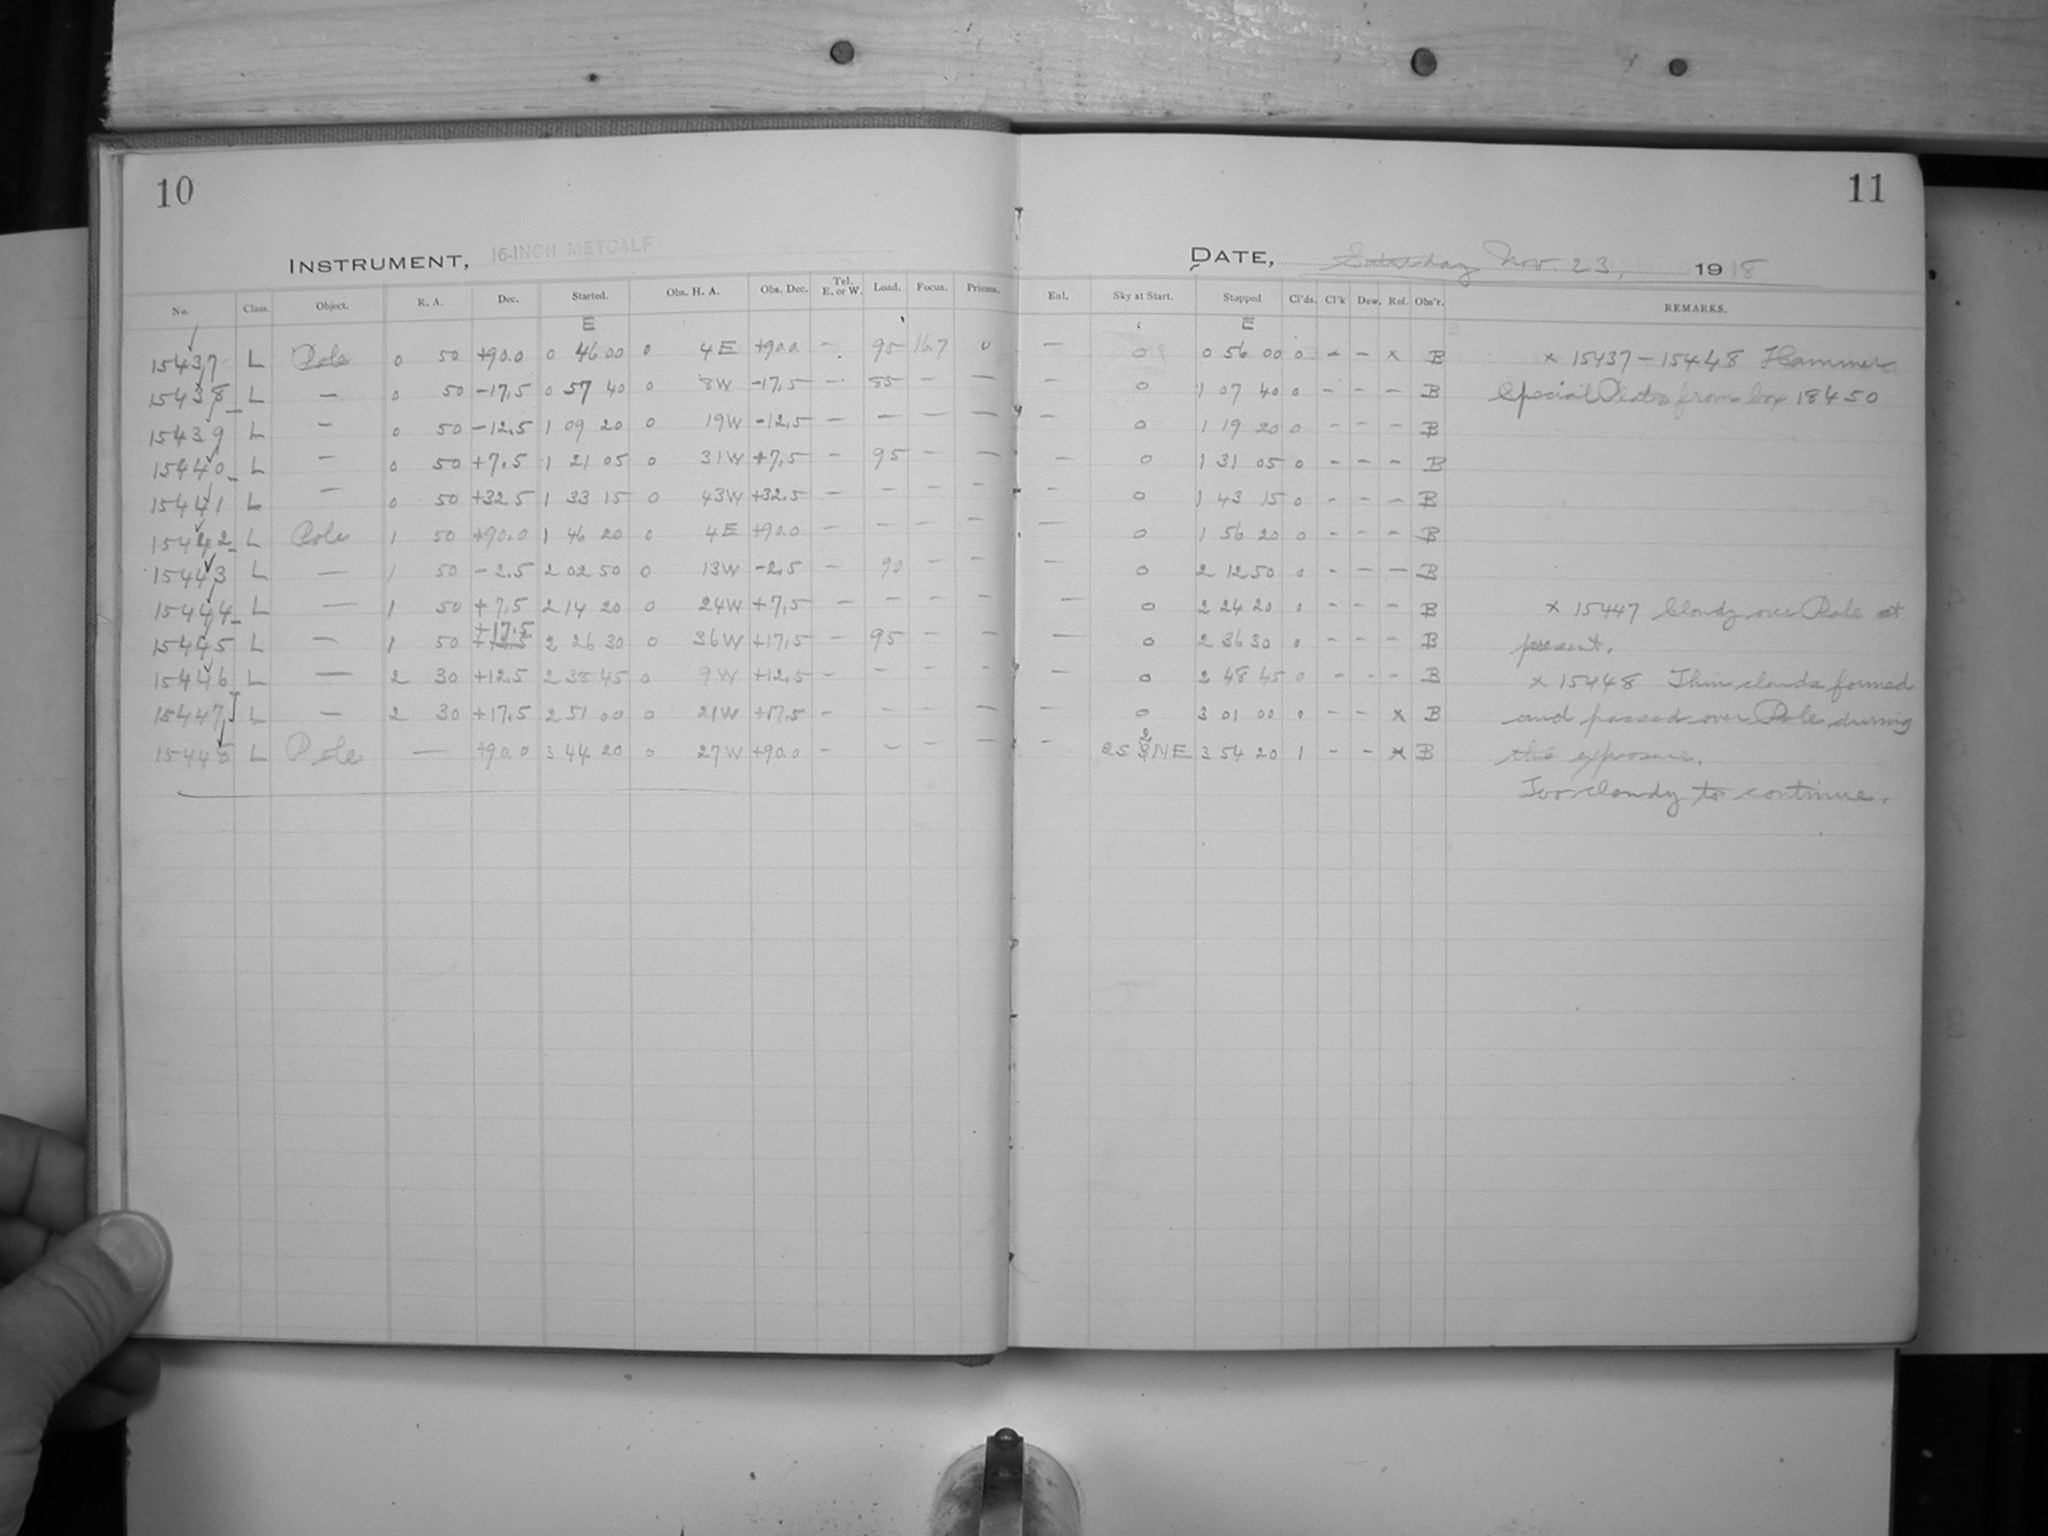 10
11
INSTRUMENT, 16-INCH METCALF
DATE, Saturday Nov. 23, 1918
No. Class. Object. R. A. Dec. Started. Obs. H. A. Obs. Dec. Tel. E. or W. Load. Focus. Prisms. Enl. Sky at Start. Stopped Cl'ds. Cl'k Dew. Ref. Obs'r. REMARKS.
E E
15437 L Pole 0 50 +90.0 0 46 00 0 4E +90.0 — 95 16.7 0 — 0 0 56 00 0 - - x B x 15437-15448 Hammer
15438 L — 0 50 -17.5 0 57 40 0 8W -17.5 — 85 — — — 0 1 07 40 0 - - - B Special Plates from box 18450
15439 L — 0 50 -12.5 1 09 20 0 19W -12.5 — — — — — 0 1 19 20 0 - - - B
15440 L — 0 50 +7.5 1 21 05 0 31W +7.5 — 95 — — — 0 1 31 05 0 - - - B
15441 L — 0 50 +32.5 1 33 15 0 43W +32.5 — — — — — 0 1 43 15 0 - - - B
15442 L Pole 1 50 +90.0 1 46 20 0 4E +90.0 — — — — — 0 1 56 20 0 - - - B
15443 L — 1 50 -2.5 2 02 50 0 13W -2.5 — 90 — — — 0 2 12 50 0 - - - B
15444 L — 1 50 +7.5 2 14 20 0 24W +7.5 — — — — — 0 2 24 20 0 - - - B x 15447 Cloudy over Pole at
+17.5
15445 L — 1 50 +12.5 2 26 30 0 36W +17.5 — 95 — — — 0 2 36 30 0 - - - B present.
15446 L — 2 30 +12.5 2 38 45 0 9W +12.5 — — — — — 0 2 48 45 0 - - - B x 15448 Thin clouds formed
15447 L — 2 30 +17.5 2 51 00 0 21W +17.5 — — — — — 0 3 01 00 0 - - x B and passed over Pole during
15448 L Pole — +90.0 3 44 20 0 27W +90.0 — — — — — NE 3 54 20 1 - - x B this exposure.
Too cloudy to continue.